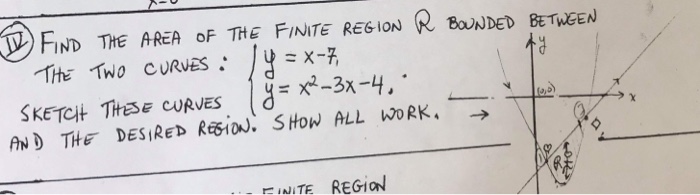 IV FIND THE AREA OF THE FINITE REGION R BOUNDED BETWEEN
THE TWO CURVES: { y = x-7,
y = x²-3x-4.
SKETCH THESE CURVES
AND THE DESIRED REGION. SHOW ALL WORK. →
y
(0,0)
x
R
FINITE REGION